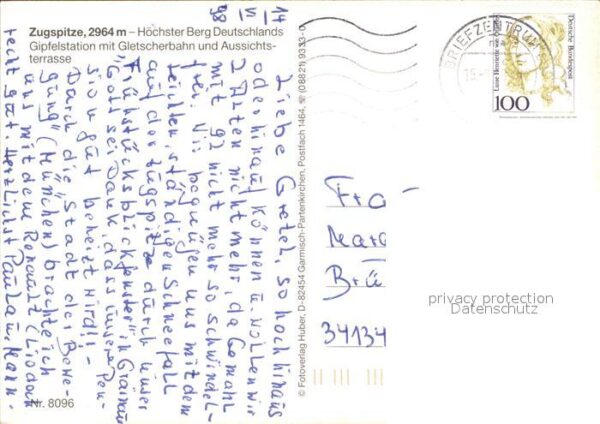 Zugspitze, 2964 m – Höchster Berg Deutschlands
Gipfelstation mit Gletscherbahn und Aussichts-
terrasse
14
IV
98
Liebe Gretel, so hoch hinaus
oder hinauf können u. wollen wir
2 Alten nicht mehr, da Gemahl
mit 92 nicht mehr so schwindel-
frei. Wir begnügen uns mit dem
leichten, ständigen Schneefall
auf der Zugspitze durch unser
Frühstücksblickfenster in Grainau
Gott sei Dank, dass unsere Pen-
sion gut beheizt wird!! -
Durch die "Stadt der Bewe-
gung" (München) brachte ich
uns mit dem Renault (Liodan
recht gut. Herzlichst Paula u. Mann.
© Fotoverlag Huber, D-82454 Garmisch-Partenkirchen, Postfach 1464, ☎ (08821) 9333-0
Nr. 8096
BRIEFZENTRUM
15.
Luise Henriette von
Deutsche Bundespost
100
Fra
Marg
Brü
34134
privacy protection
Datenschutz